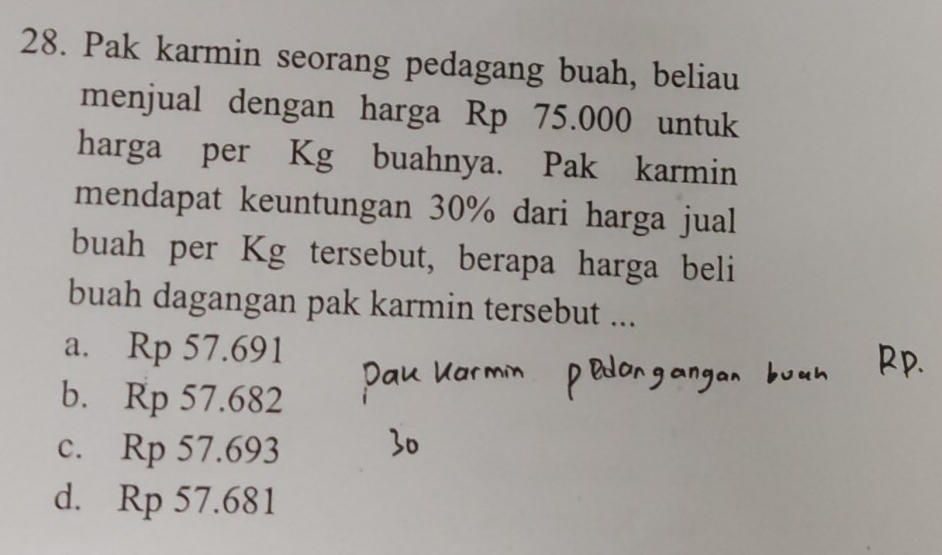 28. Pak karmin seorang pedagang buah, beliau
menjual dengan harga Rp 75.000 untuk
harga per Kg buahnya. Pak karmin
mendapat keuntungan 30% dari harga jual
buah per Kg tersebut, berapa harga beli
buah dagangan pak karmin tersebut ...
a. Rp 57.691
b. Rp 57.682
c. Rp 57.693
d. Rp 57.681
Pak Karmin pedangangan buah RP.
30